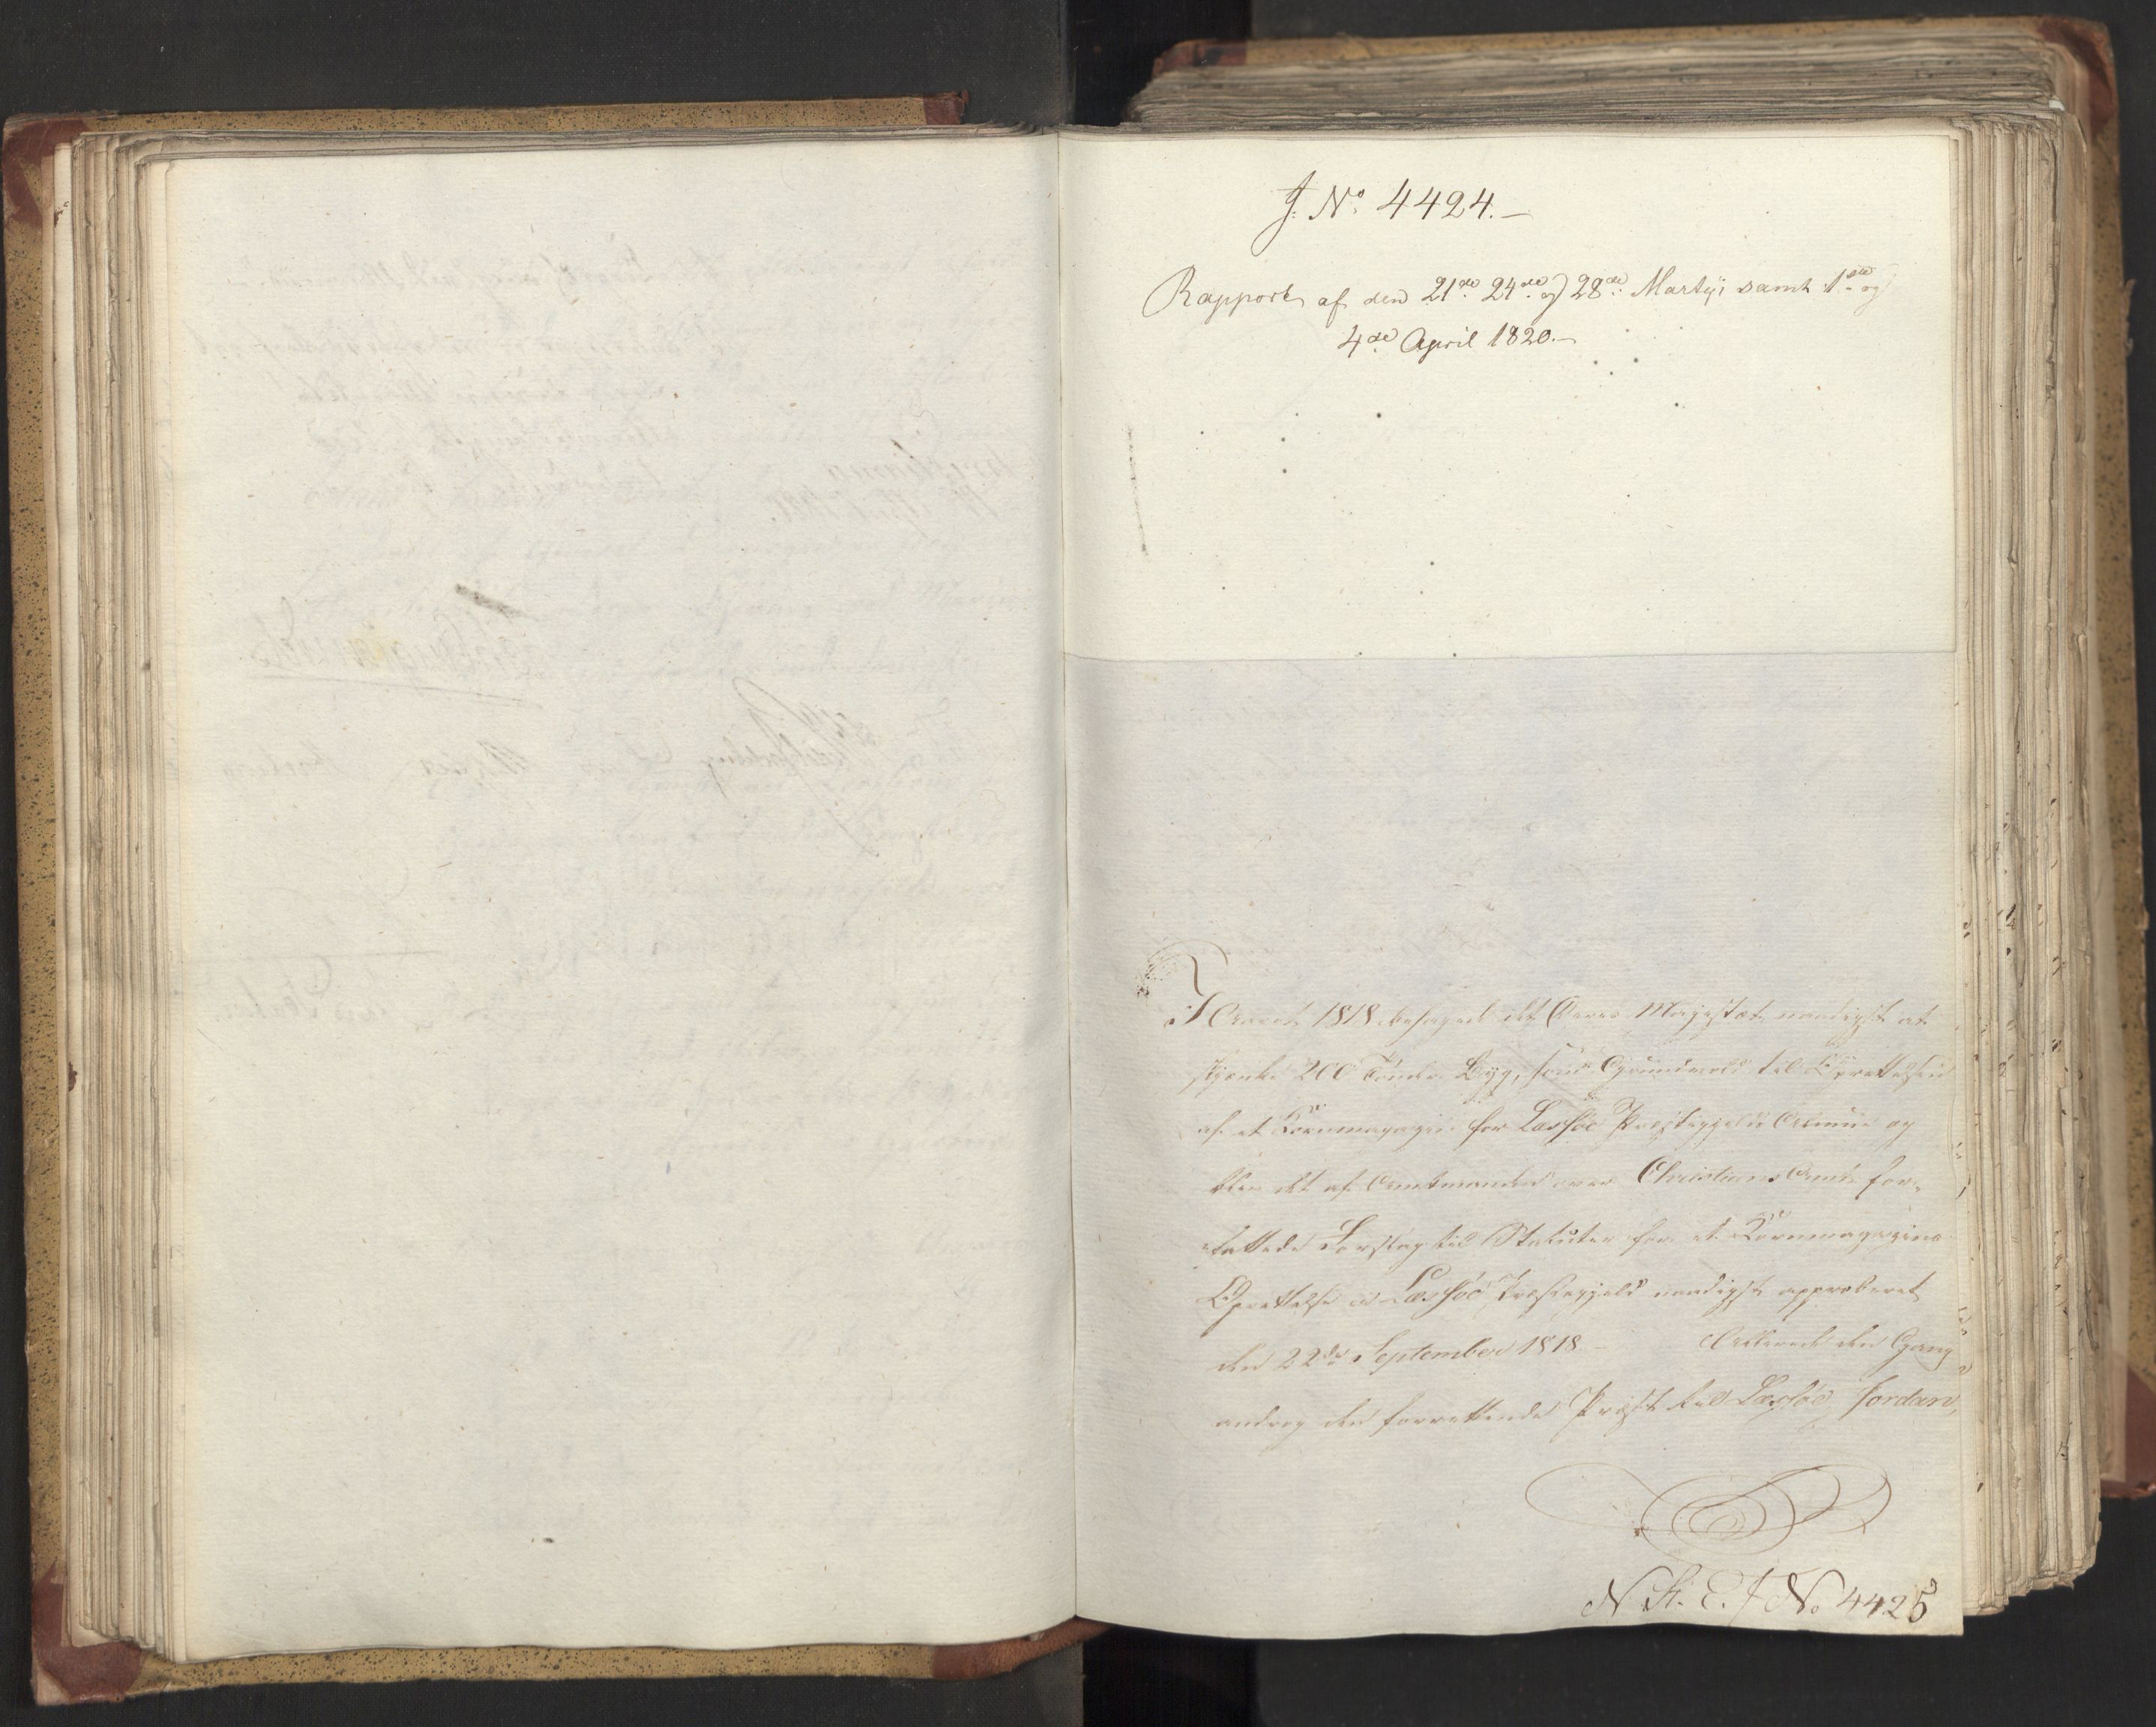 J. No 4424.—
Rapport af den 21de 24de og 28de Martij samt 1ste og
4de April 1820.—
I Aaret 1818 behagede det Deres Majestæt naadigst at
skjænke 200 Tønder Byg, som Grundvold til Oprettelsen
af et Kornmagazin for Læssøe Præstegjelds Almue og
blev det af Amtmanden over Christians Amt for-
fattede Forslag til Statuter for et Kornmagazins
Oprettelse i Læssøe Præstegjeld naadigst approberet
den 22de September 1818.— Allerede den Gang
androg den forrettende Præst til Læssøe, Jordan,
N. St. E. J No 4425